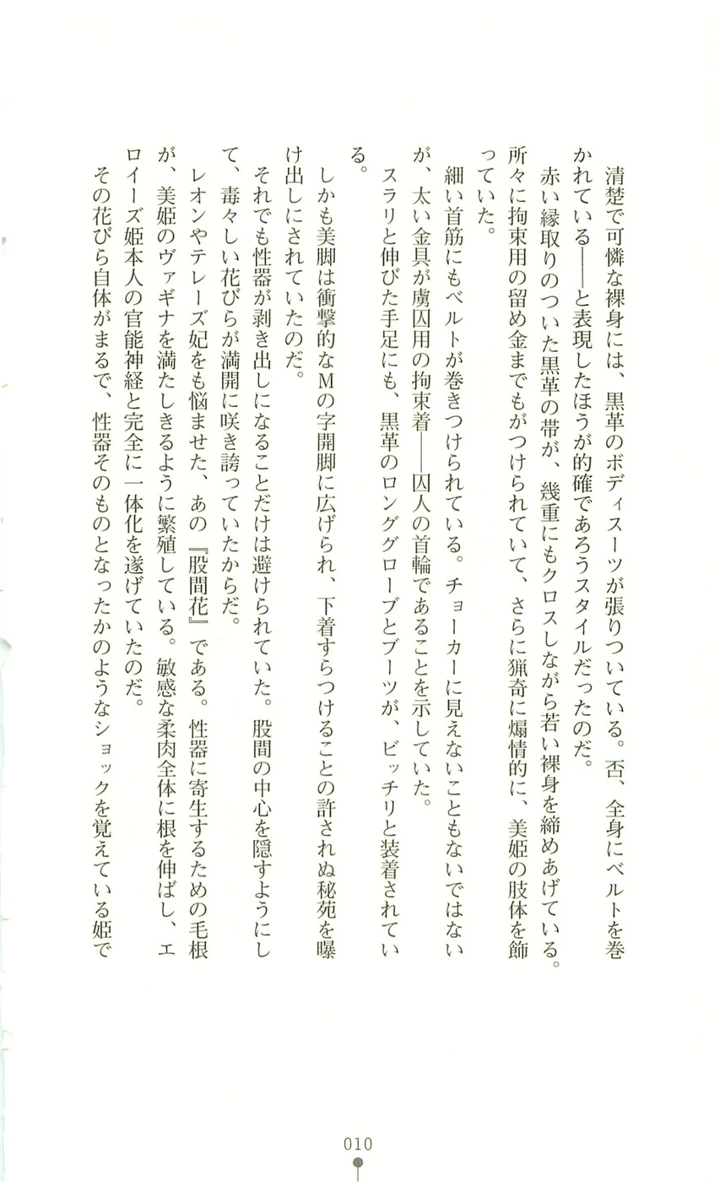 清楚で可憐な裸身には、黒革のボディスーツが張りついている。否、全身にベルトを巻
かれている――と表現したほうが的確であろうスタイルだったのだ。
　赤い縁取りのついた黒革の帯が、幾重にもクロスしながら若い裸身を締めあげている。
所々に拘束用の留め金までもがつけられていて、さらに猟奇に煽情的に、美姫の肢体を飾
っていた。
　細い首筋にもベルトが巻きつけられている。チョーカーに見えないこともないではない
が、太い金具が虜囚用の拘束着――囚人の首輪であることを示していた。
　スラリと伸びた手足にも、黒革のロンググローブとブーツが、ビッチリと装着されてい
る。
　しかも美脚は衝撃的なＭの字開脚に広げられ、下着すらつけることの許されぬ秘苑を曝
け出しにされていたのだ。
　それでも性器が剥き出しになることだけは避けられていた。股間の中心を隠すようにし
て、毒々しい花びらが満開に咲き誇っていたからだ。
　レオンやテレーズ妃をも悩ませた、あの『股間花』である。性器に寄生するための毛根
が、美姫のヴァギナを満たしきるように繁殖している。敏感な柔肉全体に根を伸ばし、エ
ロイーズ姫本人の官能神経と完全に一体化を遂げていたのだ。
　その花びら自体がまるで、性器そのものとなったかのようなショックを覚えている姫で
010